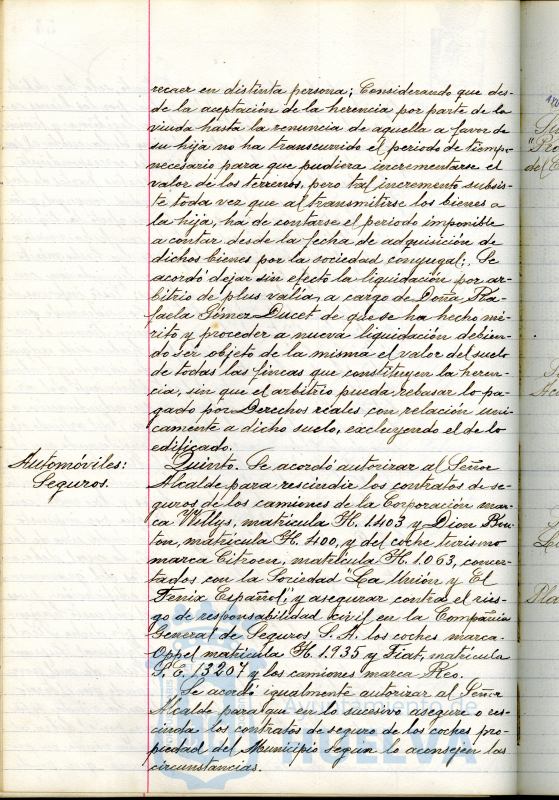 recaer en distinta persona; Considerando que des-
de la aceptación de la herencia por parte de la
viuda hasta la renuncia de aquella a favor de
su hija no ha transcurrido el periodo de tiempo
necesario para que pudiera incrementarse el
valor de los terrenos, pero tal incremento subsis-
te toda vez que al transmitirse los bienes a
la hija, ha de contarse el periodo imponible
a contar desde la fecha de adquisición de
dichos bienes por la sociedad conyugal; Se
acordó dejar sin efecto la liquidación por ar-
bitrio de plus valía, a cargo de Doña Ra-
faela Gómez Ducet de que se ha hecho mé-
rito y proceder a nueva liquidación debien-
do ser objeto de la misma el valor del suelo
de todas las fincas que constituyen la heren-
cia, sin que el arbitrio pueda rebasar lo pa-
gado por Derechos reales con relación uni-
camente a dicho suelo, excluyendo el de lo
edificado.
Automóviles:
Seguros.
Quinto. Se acordó autorizar al Señor
Alcalde para rescindir los contratos de se-
guros de los camiones de la Corporación mar-
ca Willys, matrícula H. 1403 y Dion Bou-
ton, matrícula H. 400, y del coche turismo
marca Citroen, matrícula H. 1.063, concer-
tados con la Sociedad "La Unión y El
Fenix Español", y asegurar contra el ries-
go de responsabilidad civil en la Compañia
General de Seguros S. A. los coches marca
Oppel matrícula H. 1.935 y Fiat, matrícula
S. E. 13207 y los camiones marca Reo.
Se acordó igualmente autorizar al Señor
Alcalde para que en lo sucesivo asegure o res-
cinda los contratos de seguro de los coches pro-
piedad del Municipio segun lo aconsejen las
circunstancias.
Ayuntamiento de
HUELVA